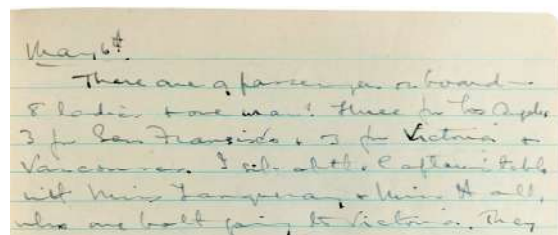 May 6th.
There are 9 passengers on board -
8 ladies + one man! Three for Los Angeles
3 for San Francisco + 3 for Victoria +
Vancouver. I sit at the Captain's table
with Miss + Miss Hall,
who are both going to Victoria. They